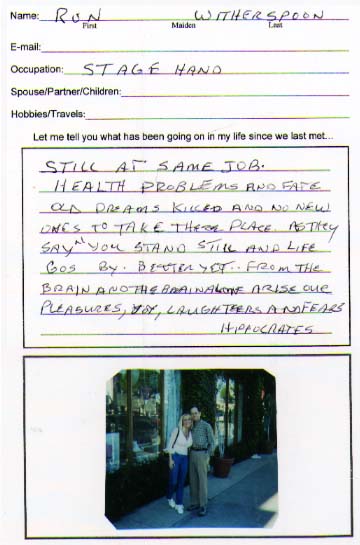 Name: RON WITHERSPOON
First Maiden Last
E-mail:
Occupation: STAGE HAND
Spouse/Partner/Children:
Hobbies/Travels:
Let me tell you what has been going on in my life since we last met...
STILL AT SAME JOB.
HEALTH PROBLEMS AND FATE
OLD DREAMS KILLED AND NO NEW
ONES TO TAKE THERE PLACE. AS THEY
SAY "YOU STAND STILL AND LIFE
GOS BY. BETTER YET.. FROM THE
BRAIN AND THE BRAIN ALONE ARISE OUR
PLEASURES, JOY, LAUGHTERS AND FEARS
HIPPOCRATES